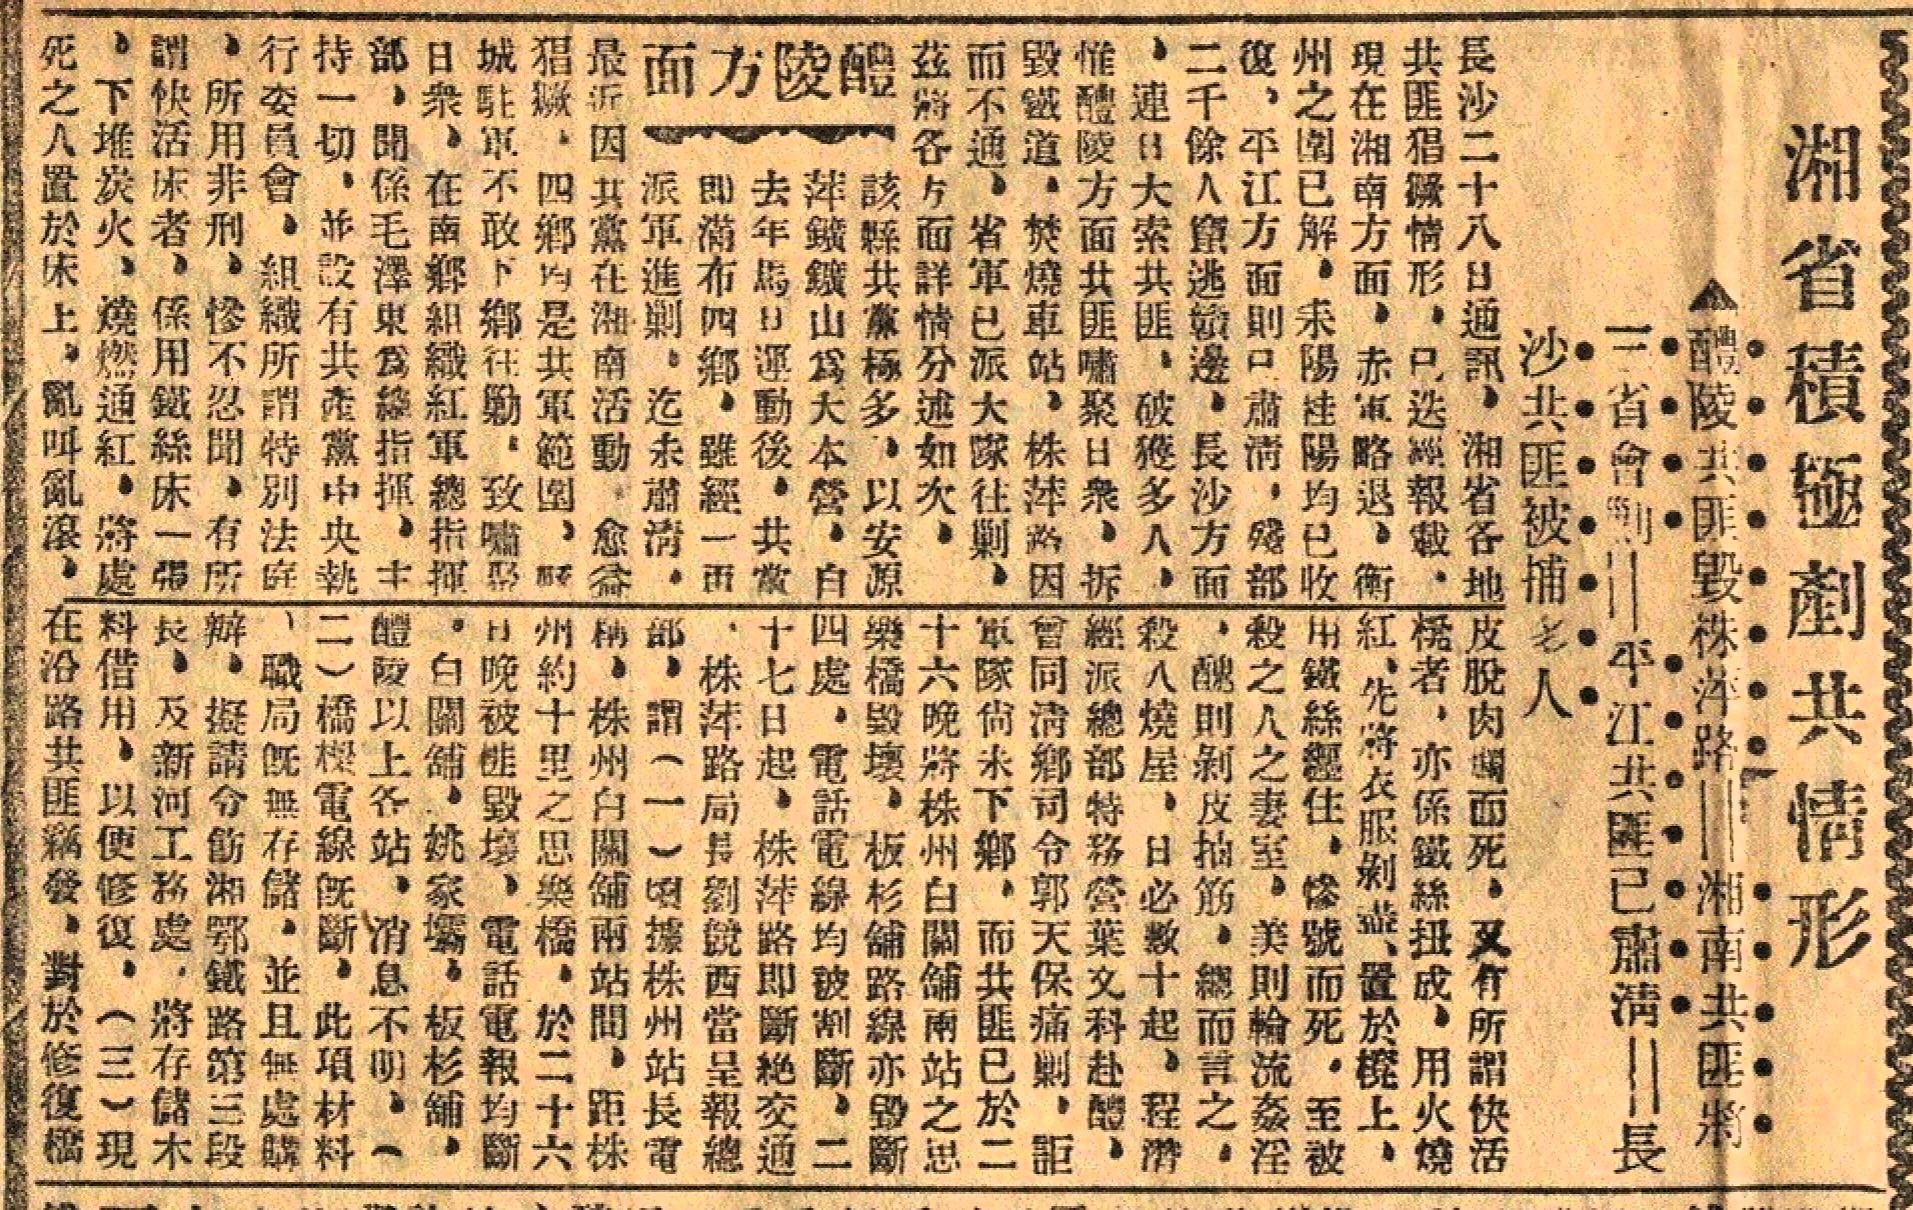 湘省積極剷共情形
▲醴陵共匪毀株萍路——湘南共匪將
三省會剿——平江共匪已肅清——長
沙共匪被捕多人
長沙二十八日通訊、湘省各地
共匪猖獗情形、已迭經報載、
現在湘南方面、赤軍略退、衡
州之圍已解、耒陽桂陽均已收
復、平江方面則已肅清、殘部
二千餘人竄逃贛邊、長沙方面
、連日大索共匪、破獲多人、
惟醴陵方面共匪嘯聚日衆、拆
毀鐵道、焚燒車站、株萍路因
而不通、省軍已派大隊往剿、
茲將各方面詳情分述如次、
醴陵方面
該縣共黨極多、以安源
萍鑛鑛山爲大本營、自
去年馬日運動後、共黨
即滿布四鄉、雖經一再
派軍進剿、迄未肅清、
最近因共黨在湘南活動、愈益
猖獗、四鄉均是共軍範圍、縣
城駐軍不敢下鄉往剿、致嘯聚
日衆、在南鄉組織紅軍總指揮
部、聞係毛澤東爲總指揮、主
持一切、並設有共產黨中央執
行委員會、組織所謂特別法庭
、所用非刑、慘不忍聞、有所
謂快活床者、係用鐵絲床一張
、下堆炭火、燒燃通紅、將處
死之人置於床上、亂叫亂滾、
皮脫肉爛而死、又有所謂快活
櫈者、亦係鐵絲扭成、用火燒
紅、先將衣服剝盡、置於櫈上、
用鐵絲經住、慘號而死、至被
殺之人之妻室、美則輪流姦淫
、醜則剝皮抽筋、總而言之、
殺人燒屋、日必數十起、程潛
經派總部特務營葉文科赴醴、
曾同清鄉司令郭天保痛剿、詎
軍隊尚未下鄉、而共匪已於二
十六晚將株州白關舖兩站之思
樂橋毀壞、板杉舖路線亦毀斷
四處、電話電線均被割斷、二
十七日起、株萍路即斷絕交通
、株萍路局長劉競西當呈報總
部、謂(一)頃據株州站長電
稱、株州白關舖兩站間、距株
州約十里之思樂橋、於二十六
日晚被匪毀壞、電話電報均斷
、白關舖、姚家壩、板杉舖、
醴陵以上各站、消息不明、(
二)橋樑電線既斷、此項材料
、職局既無存儲、並且無處購
辦、擬請令飭湘鄂鐵路第三段
長、及新河工務處、將存儲木
料借用、以便修復、(三)現
在沿路共匪竊發、對於修復橋